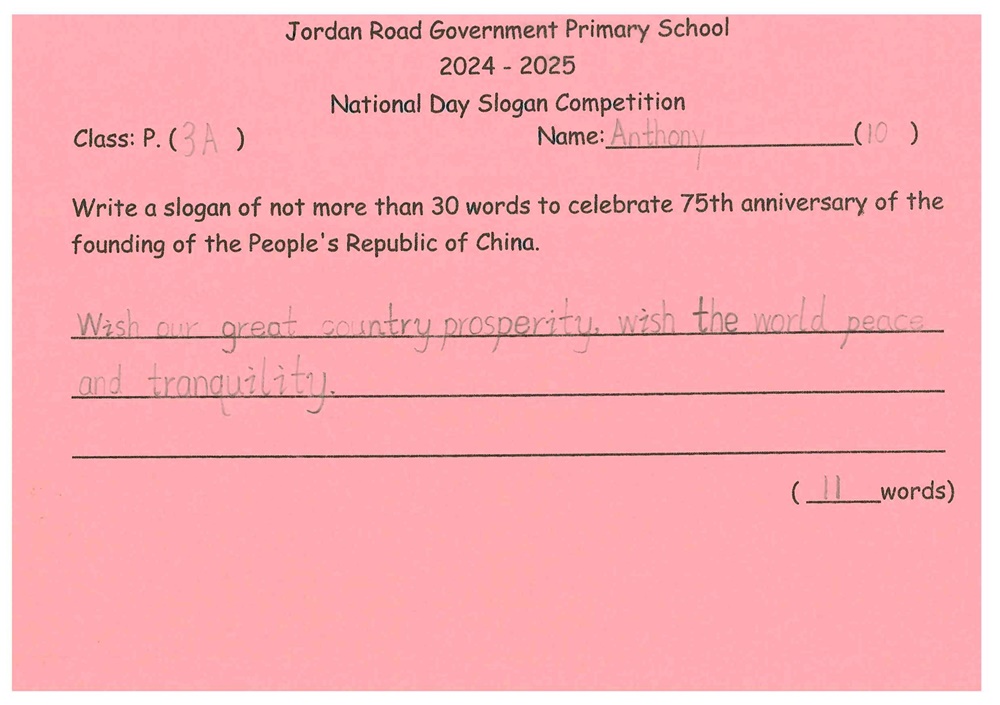 Jordan Road Government Primary School
2024 - 2025
National Day Slogan Competition
Class: P. (3A) Name: Anthony (10)
Write a slogan of not more than 30 words to celebrate 75th anniversary of the
founding of the People's Republic of China.
Wish our great country prosperity, wish the world peace
and tranquility.
(11 words)